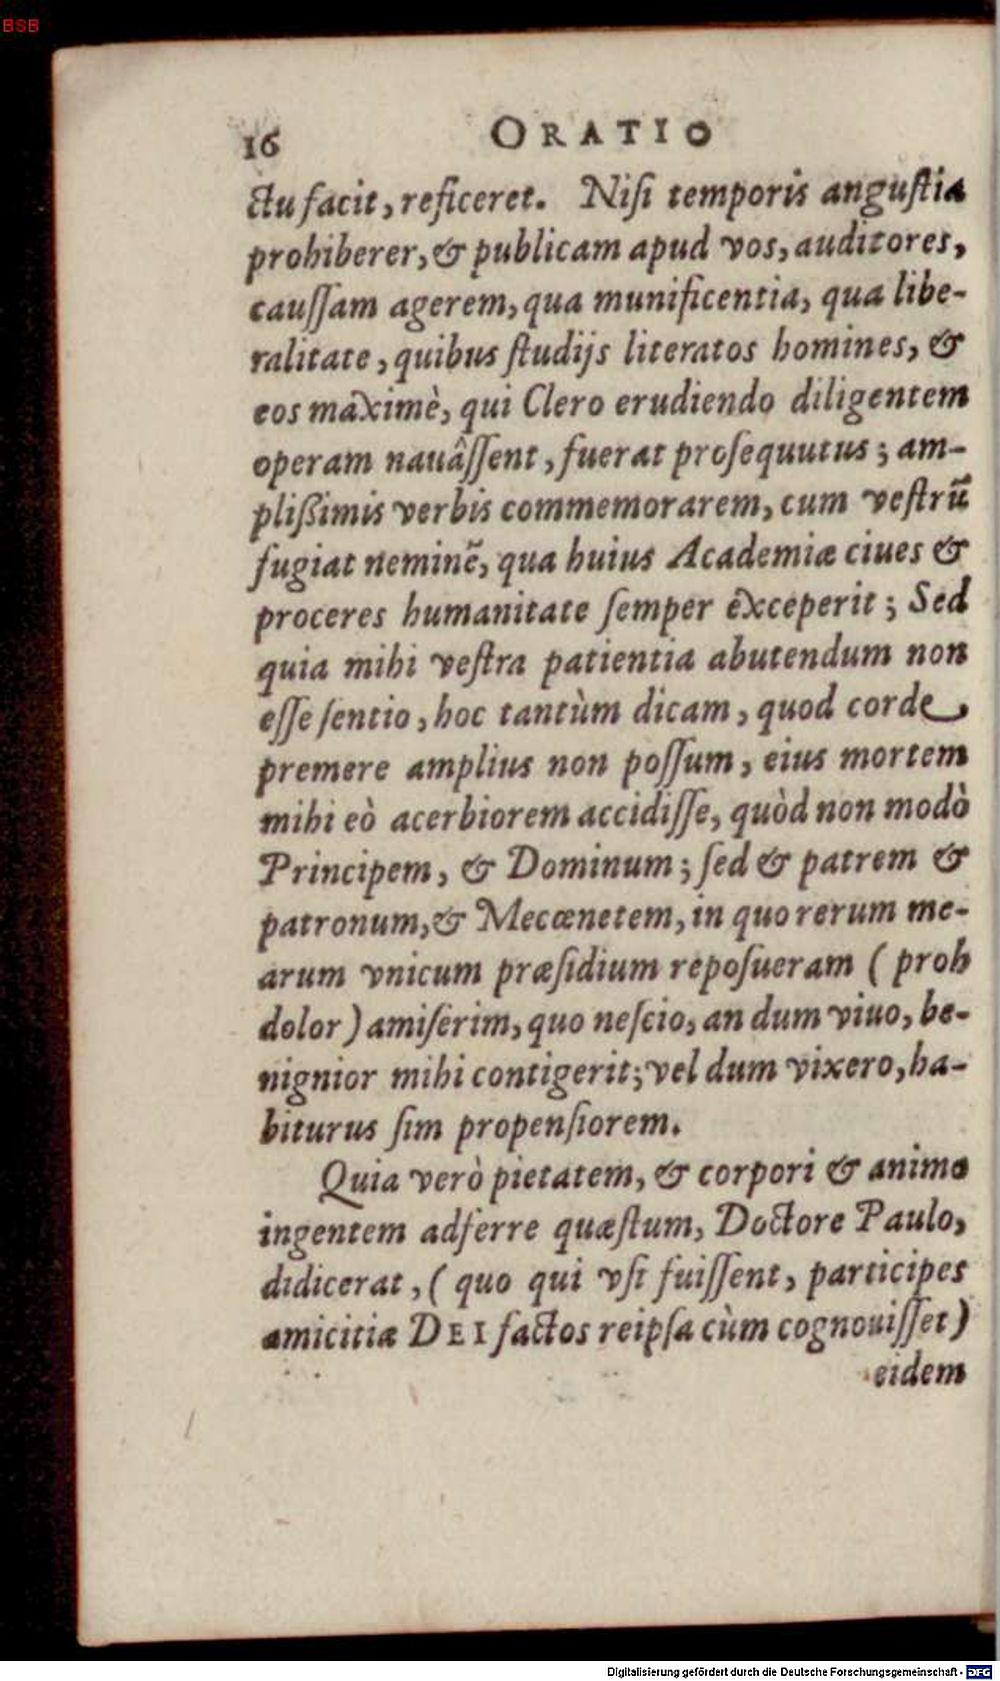 BSB
16 ORATIO
ctu facit, reficeret. Niſi temporis anguſtia
prohiberer, & publicam apud vos, auditores,
cauſſam agerem, qua munificentia, qua libe-
ralitate, quibus ſtudijs literatos homines, &
eos maximè, qui Clero erudiendo diligentem
operam nauâſſent, fuerat proſequutus; am-
pliſsimis verbis commemorarem, cum veſtrũ
fugiat neminẽ, qua huius Academiæ ciues &
proceres humanitate ſemper exceperit; Sed
quia mihi veſtra patientia abutendum non
eſſe ſentio, hoc tantùm dicam, quod corde
premere amplius non poſſum, eius mortem
mihi eò acerbiorem accidiſſe, quòd non modò
Principem, & Dominum; ſed & patrem &
patronum, & Mecœnetem, in quo rerum me-
arum vnicum præſidium repoſueram (proh
dolor) amiſerim, quo neſcio, an dum viuo, be-
nignior mihi contigerit; vel dum vixero, ha-
biturus ſim propenſiorem.
Quia verò pietatem, & corpori & animo
ingentem adferre quæſtum, Doctore Paulo,
didicerat, (quo qui vſi fuiſſent, participes
amicitiæ DEI factos reipſa cùm cognouiſſet)
eidem
Digitalisierung gefördert durch die Deutsche Forschungsgemeinschaft - DFG